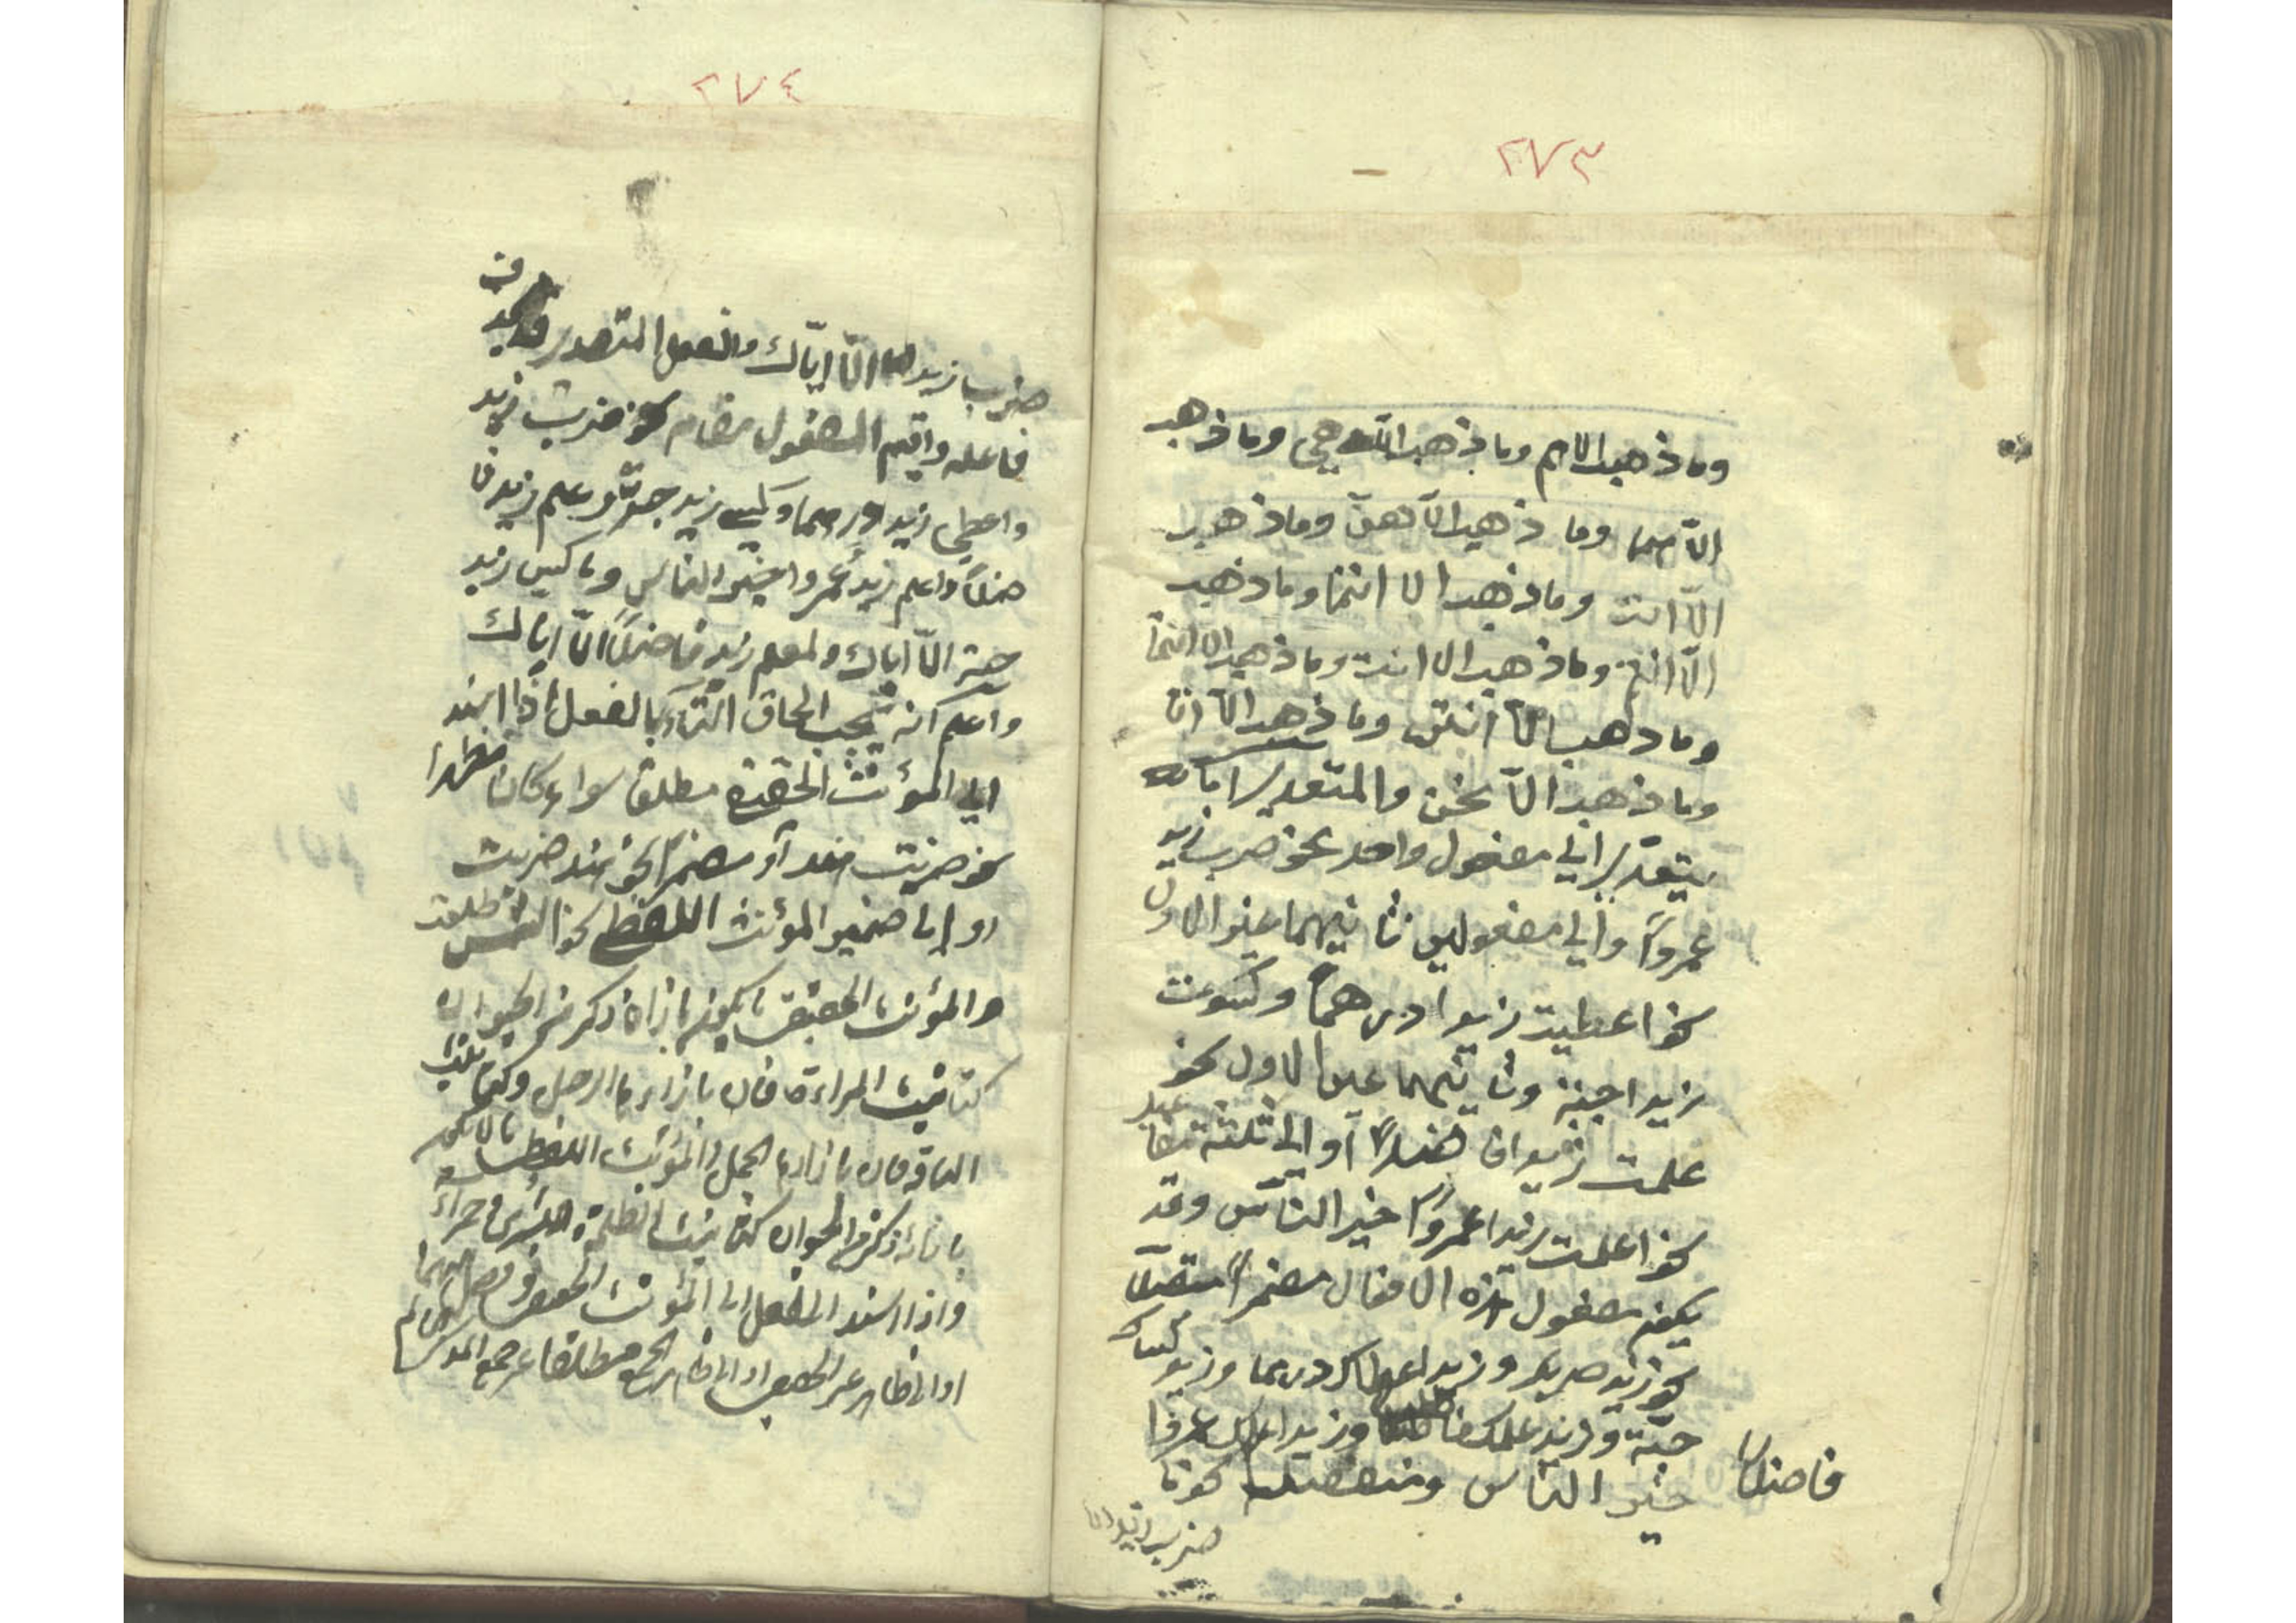 ٢٧٣
وما ذهب الا هم وما ذهب الا هي وما ذهب
الّا هما وما ذهب الّا هنّ وما ذهب
الّا انت وما ذهب الا انتما وما ذهب
الّا انتم وما ذهب الا انت وما ذهب الا انتما
وما ذهب الّا انتنّ وما ذهب الّا انا
وما ذهب الّا نحن والمتعدي
يتعدي الي مفعول واحد نحو ضرب زيد
عمرواً والي مفعولين ثانيهما غير الاول
نحو اعطيت زيدا درهماً وكسوت
زيدا جبّة وثانيهما عين الاول نحو
علمت زيدا فاضلاً أو الي ثلثة مفاعيل
نحو اعلمت زيدا عمرواً خير النّاس وقد
يكون مفعول هذه الافعال مضمراً متصلاً
نحو زيد ضربك وزيد اعطاك درهما وزيد كساك
جبّة وزيد علمك فاضلا وزيد اعلمك عمروا
فاضلا
خير الناس ومنفصلا نحو ما
ضرب زيد الا
٢٧٤
ضرب زيد الّا ايّاك والفعل المتعدي قد يحذف
فاعله واقيم المفعول مقامه نحو ضرب زيد
واعطي زيد درهما وكسي زيد جبّة وعلم زيد فا
ضلاً واعلم زيد عمروا خير الناس وما كسي زيد
جبّة الّا اياك ولم يعلم زيد فاضلاً الّا اياك
واعلم انه يجب الحاق التّاء بالفعل اذا اسند
الي المؤنث الحقيقي مطلقا سواء كان مظهرا
نحو ضربت هند أو مضمراً نحو هند ضربت
او إلى ضمير المؤنث اللفظي نحو الشمس طلعت
والمؤنث الحقيقي ما يكون بازائه ذكر من الحيوان
كتانيث المراءة فان بازاءها الرجل وكتانيث
الناقة فان بازاءها الجمل والمؤنث اللفظي ما لا يكون
بازائه ذكر من الحيوان كتانيث الظلمة
واذا اسند الفعل الى المؤنث الحقيقي وفصل بينهما
او الى ظاهر غير الحقيقي او الى ظاهر الجمع مطلقا غير جمع المذكر السالم